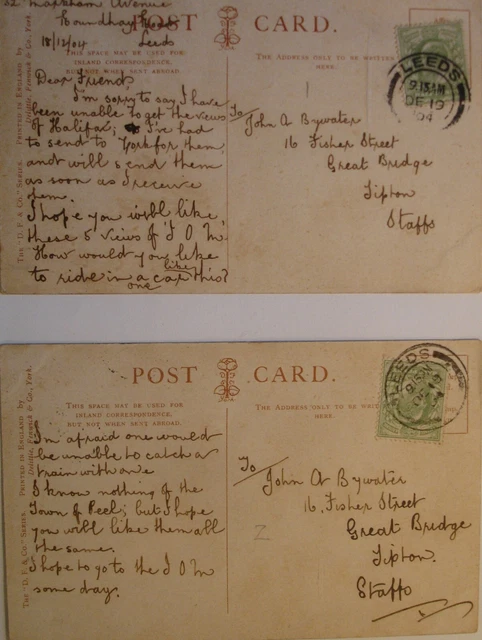 52 Markham Avenue
Roundhay Road
18/12/04 Leeds
POST CARD.
THIS SPACE MAY BE USED FOR
INLAND CORRESPONDENCE,
BUT NOT WHEN SENT ABROAD.
THE ADDRESS ONLY TO BE WRITTEN
HERE.
LEEDS
9.15AM
DE 19
04
Dear Friend
I'm sorry to say I have
been unable to get the views
of Halifax; I've had
to send to York for them,
and will send them
as soon as I receive
them.
I hope you will like
these 5 views of I O M.
How would you like
to ride in a car like this?
one
To
John A Bywater
16 Fisher Street
Great Bridge
Tipton
Staffs
THE "D. F. & CO." SERIES. PRINTED IN ENGLAND by
& Co., York.
POST CARD.
THIS SPACE MAY BE USED FOR
INLAND CORRESPONDENCE,
BUT NOT WHEN SENT ABROAD.
THE ADDRESS ONLY TO BE
HERE.
LEEDS
I'm afraid one would
be unable to catch a
train with one
I know nothing of the
Town of Peel; but I hope
you will like them all
the same.
I hope to go to the I O M
some day.
To
John A Bywater
16, Fisher Street
Great Bridge
Tipton.
Staffs
THE "D. F. & CO." SERIES. PRINTED IN ENGLAND by
& Co., York.